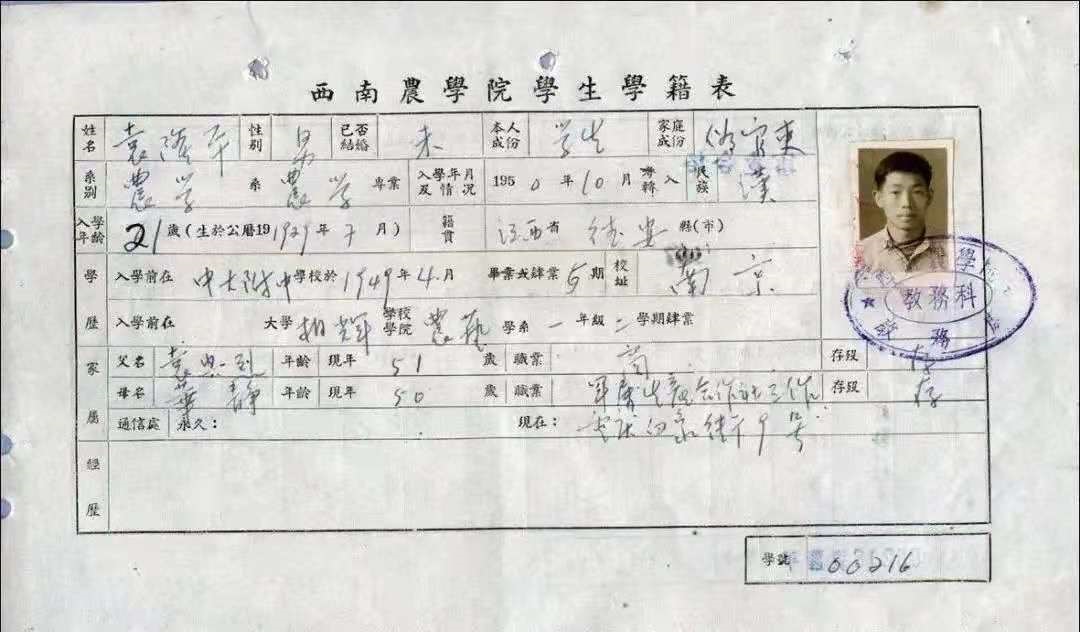 西南農學院學生學籍表
姓名 袁隆平 性別 男 已否結婚 未 本人成份 学生 家庭成份
系別 農学 系 農学 專業 入學年月及情况 1950年10月 轉入 民族 漢
入學年齡 21歲(生於公曆19 1929年 7月) 籍貫 江西省 德安 縣(市)
學歷 入學前在 中大附中學校於1949年4月 畢業或肄業 5期 校址 南京
入學前在 大學 相輝 學校學院 農藝 學系 一年級 二學期肄業
家屬 父名 袁興烈 年齡 現年 51 歲 職業 商 存歿 存
母名 華静 年齡 現年 50 歲 職業 軍属生產合作社工作 存歿 存
通信處 永久: 現在: 重庆 街79号
經歷
學號 00216
教務科